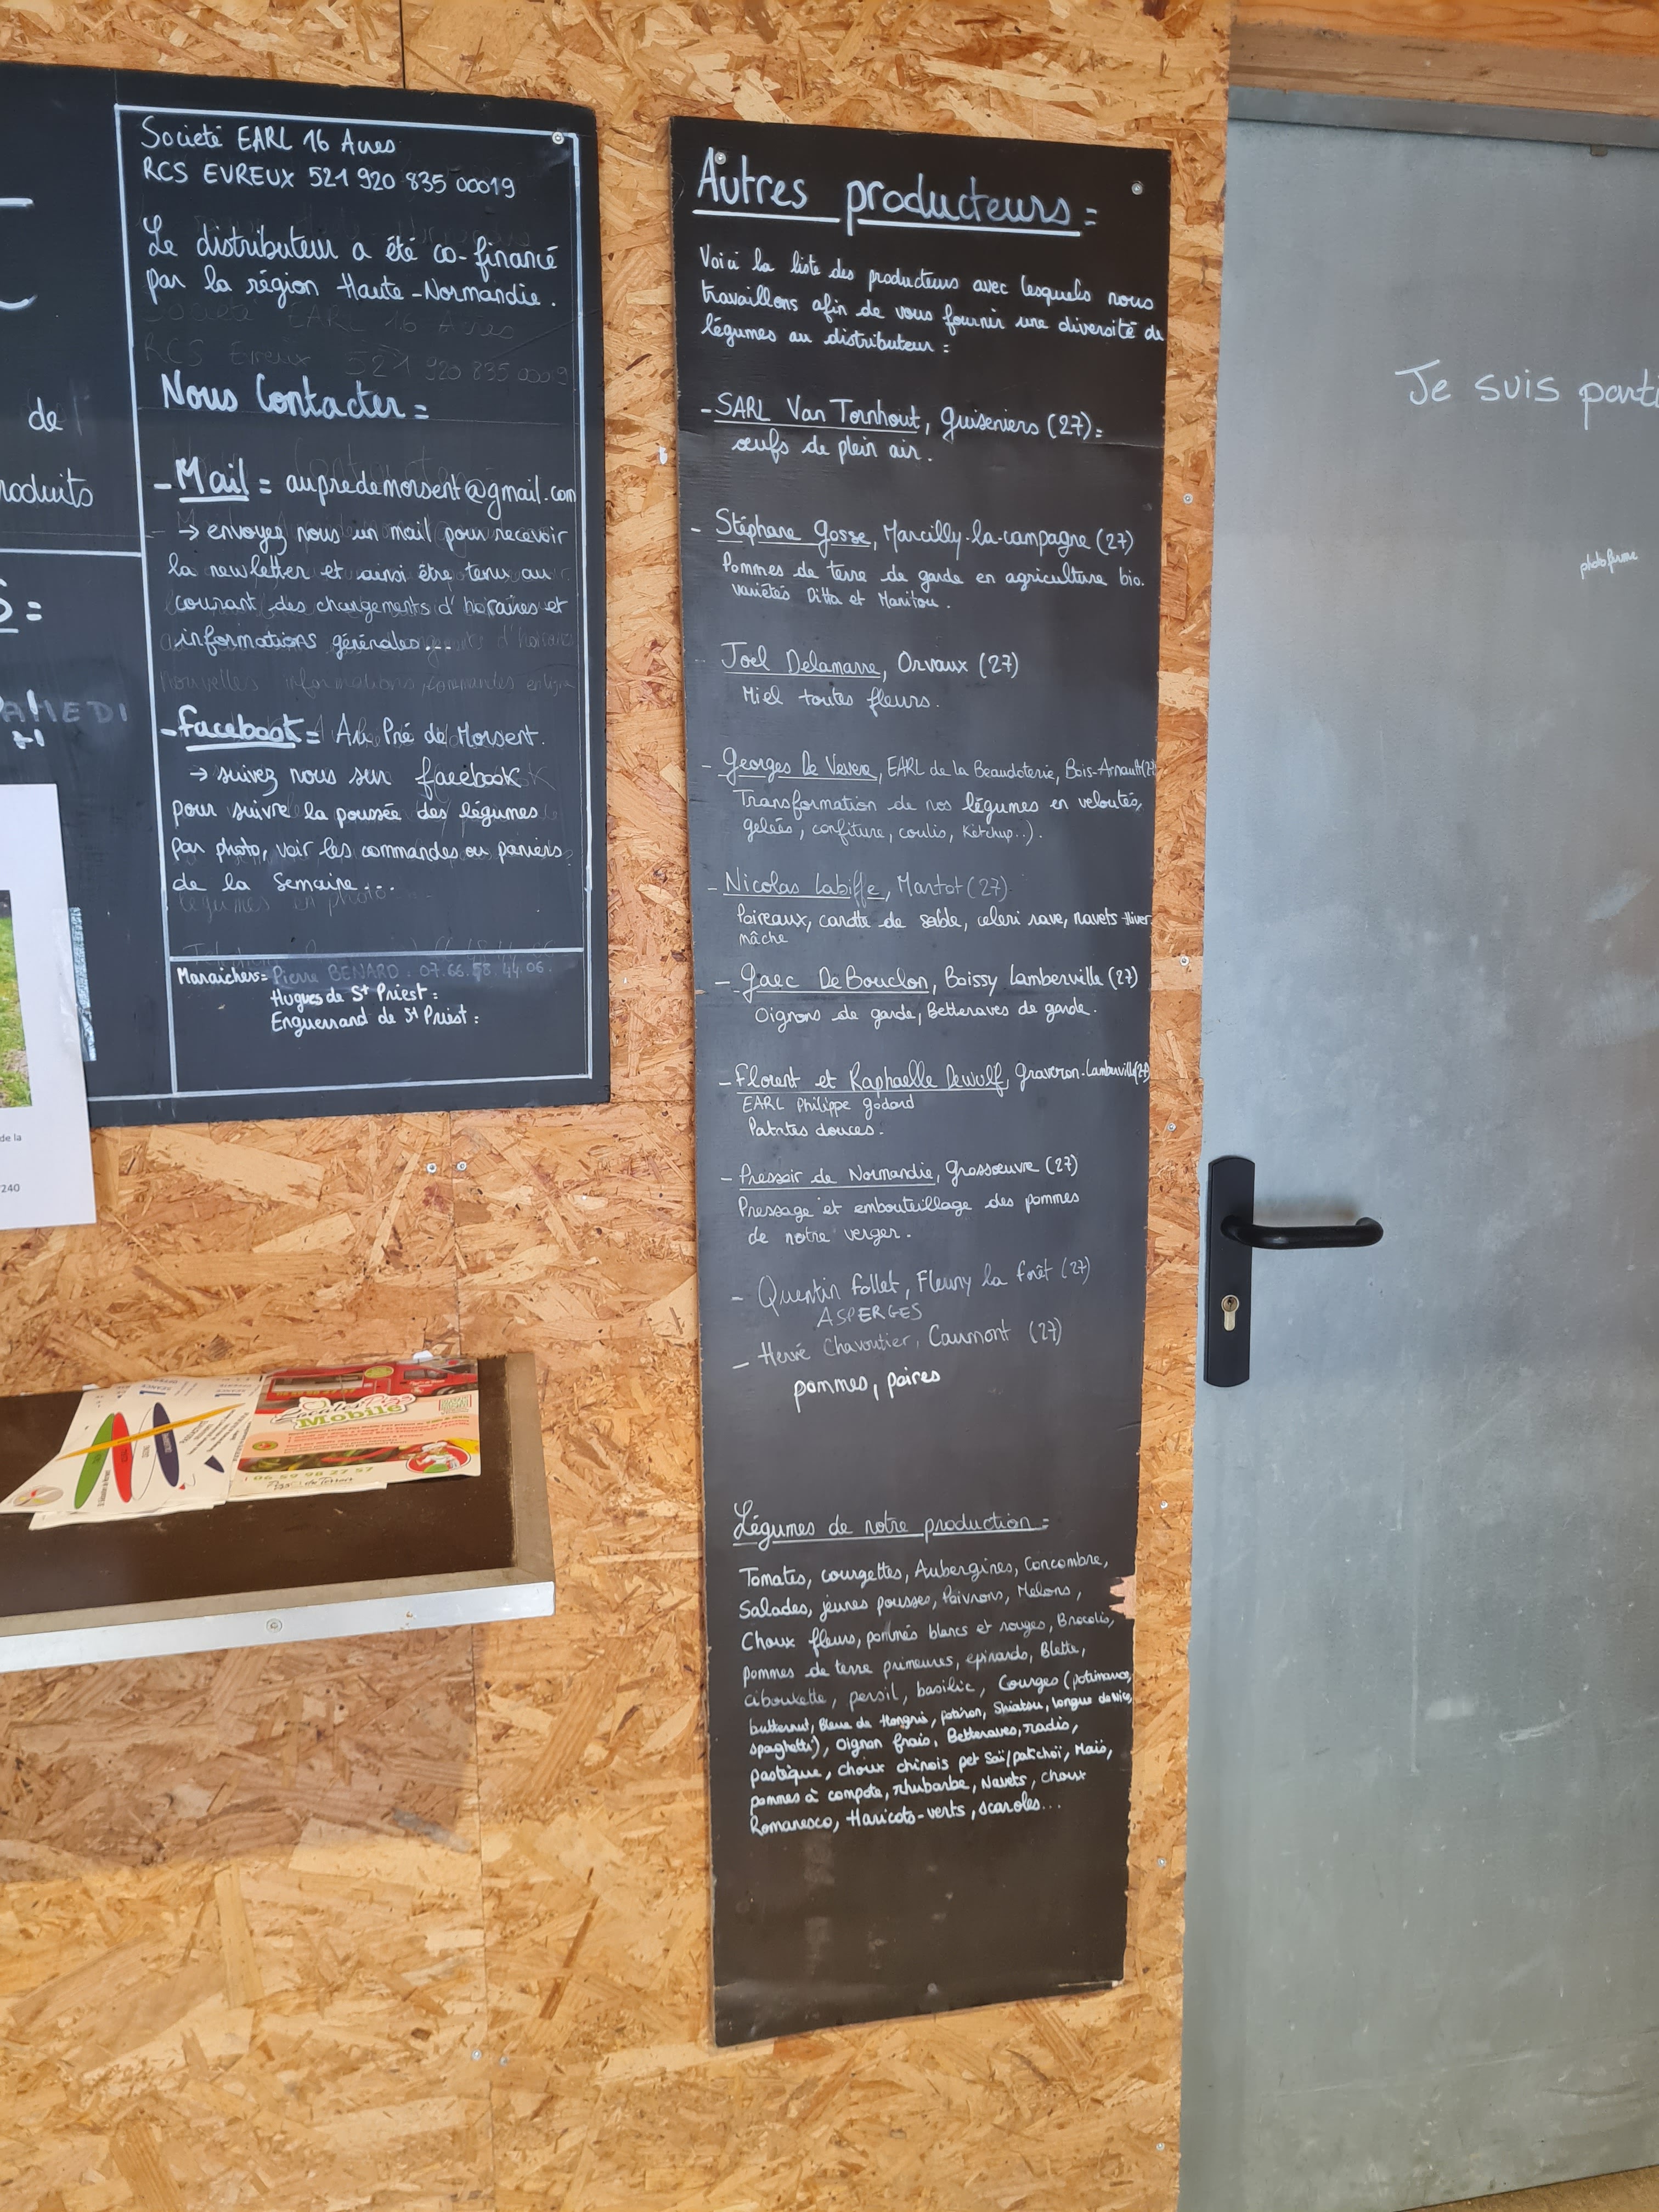 Societé EARL 16 Acres
RCS EVREUX 521 920 835 00019
Le distributeur a été co-financé
par la région Haute-Normandie.
Nous Contacter =
- Mail = aupredemorsent@gmail.com
→ envoyez nous un mail pour recevoir
la newletter et ainsi être tenu au
courant des changements d'horaires et
informations générales...
- facebook = Au Pré de Morsent.
→ suivez nous sur facebook
pour suivre la poussée des légumes
par photo, voir les commandes ou paniers
de la semaine...
Maraichers = Pierre BENARD. 07.66.58.44.06.
Hugues de St Priest :
Enguerrand de St Priest :
de
roduits
S =
AMEDI
de la
240
Autres producteurs =
Voici la liste des producteurs avec lesquels nous
travaillons afin de vous fournir une diversité de
légumes au distributeur =
- SARL Van Tornhout, Guiseniers (27) =
œufs de plein air.
- Stéphane Gosse, Marcilly-la-campagne (27)
Pommes de terre de garde en agriculture bio.
variétés Ditta et Manitou.
- Joel Delamarre, Orvaux (27)
Miel toutes fleurs.
- Georges De Vevere, EARL de la Beaudoterie, Bois-Arnault (27)
Transformation de nos légumes en veloutés,
gelées, confiture, coulis, Ketchup..).
- Nicolas Labiffe, Martot (27)
Poireaux, carotte de sable, celeri rave, navets hiver
mâche
- Gaec De Bouclon, Boissy Lamberville (27)
Oignons de garde, Betteraves de garde.
- Florent et Raphaelle Dewulf, Graveron-Lamberville (27)
EARL Philippe Godard
Patates douces.
- Pressoir de Normandie, Grossoeuvre (27)
Pressage et embouteillage des pommes
de notre verger.
- Quentin Follet, Fleury la forêt (27)
ASPERGES
- Hervé Chavoutier, Caumont (27)
pommes, poires
Légumes de notre production =
Tomates, courgettes, Aubergines, Concombre,
Salades, jeunes pousses, Poivrons, Melons,
Choux fleurs, pommés blancs et rouges, Brocolis,
pommes de terre primeures, epinards, Blette,
ciboulette, persil, basilic, Courges (potimarron,
butternut, Bleue de Hongrie, potiron, Shiatsu, longue de Nice,
spaghetti), Oignon frais, Betteraves, radis,
pastèque, choux chinois pet Saï/patchoï, Maïs,
pommes à compote, rhubarbe, Navets, choux
Romanesco, Haricots-verts, scaroles...
Je suis parti
Mobile
06 59 98 27 57